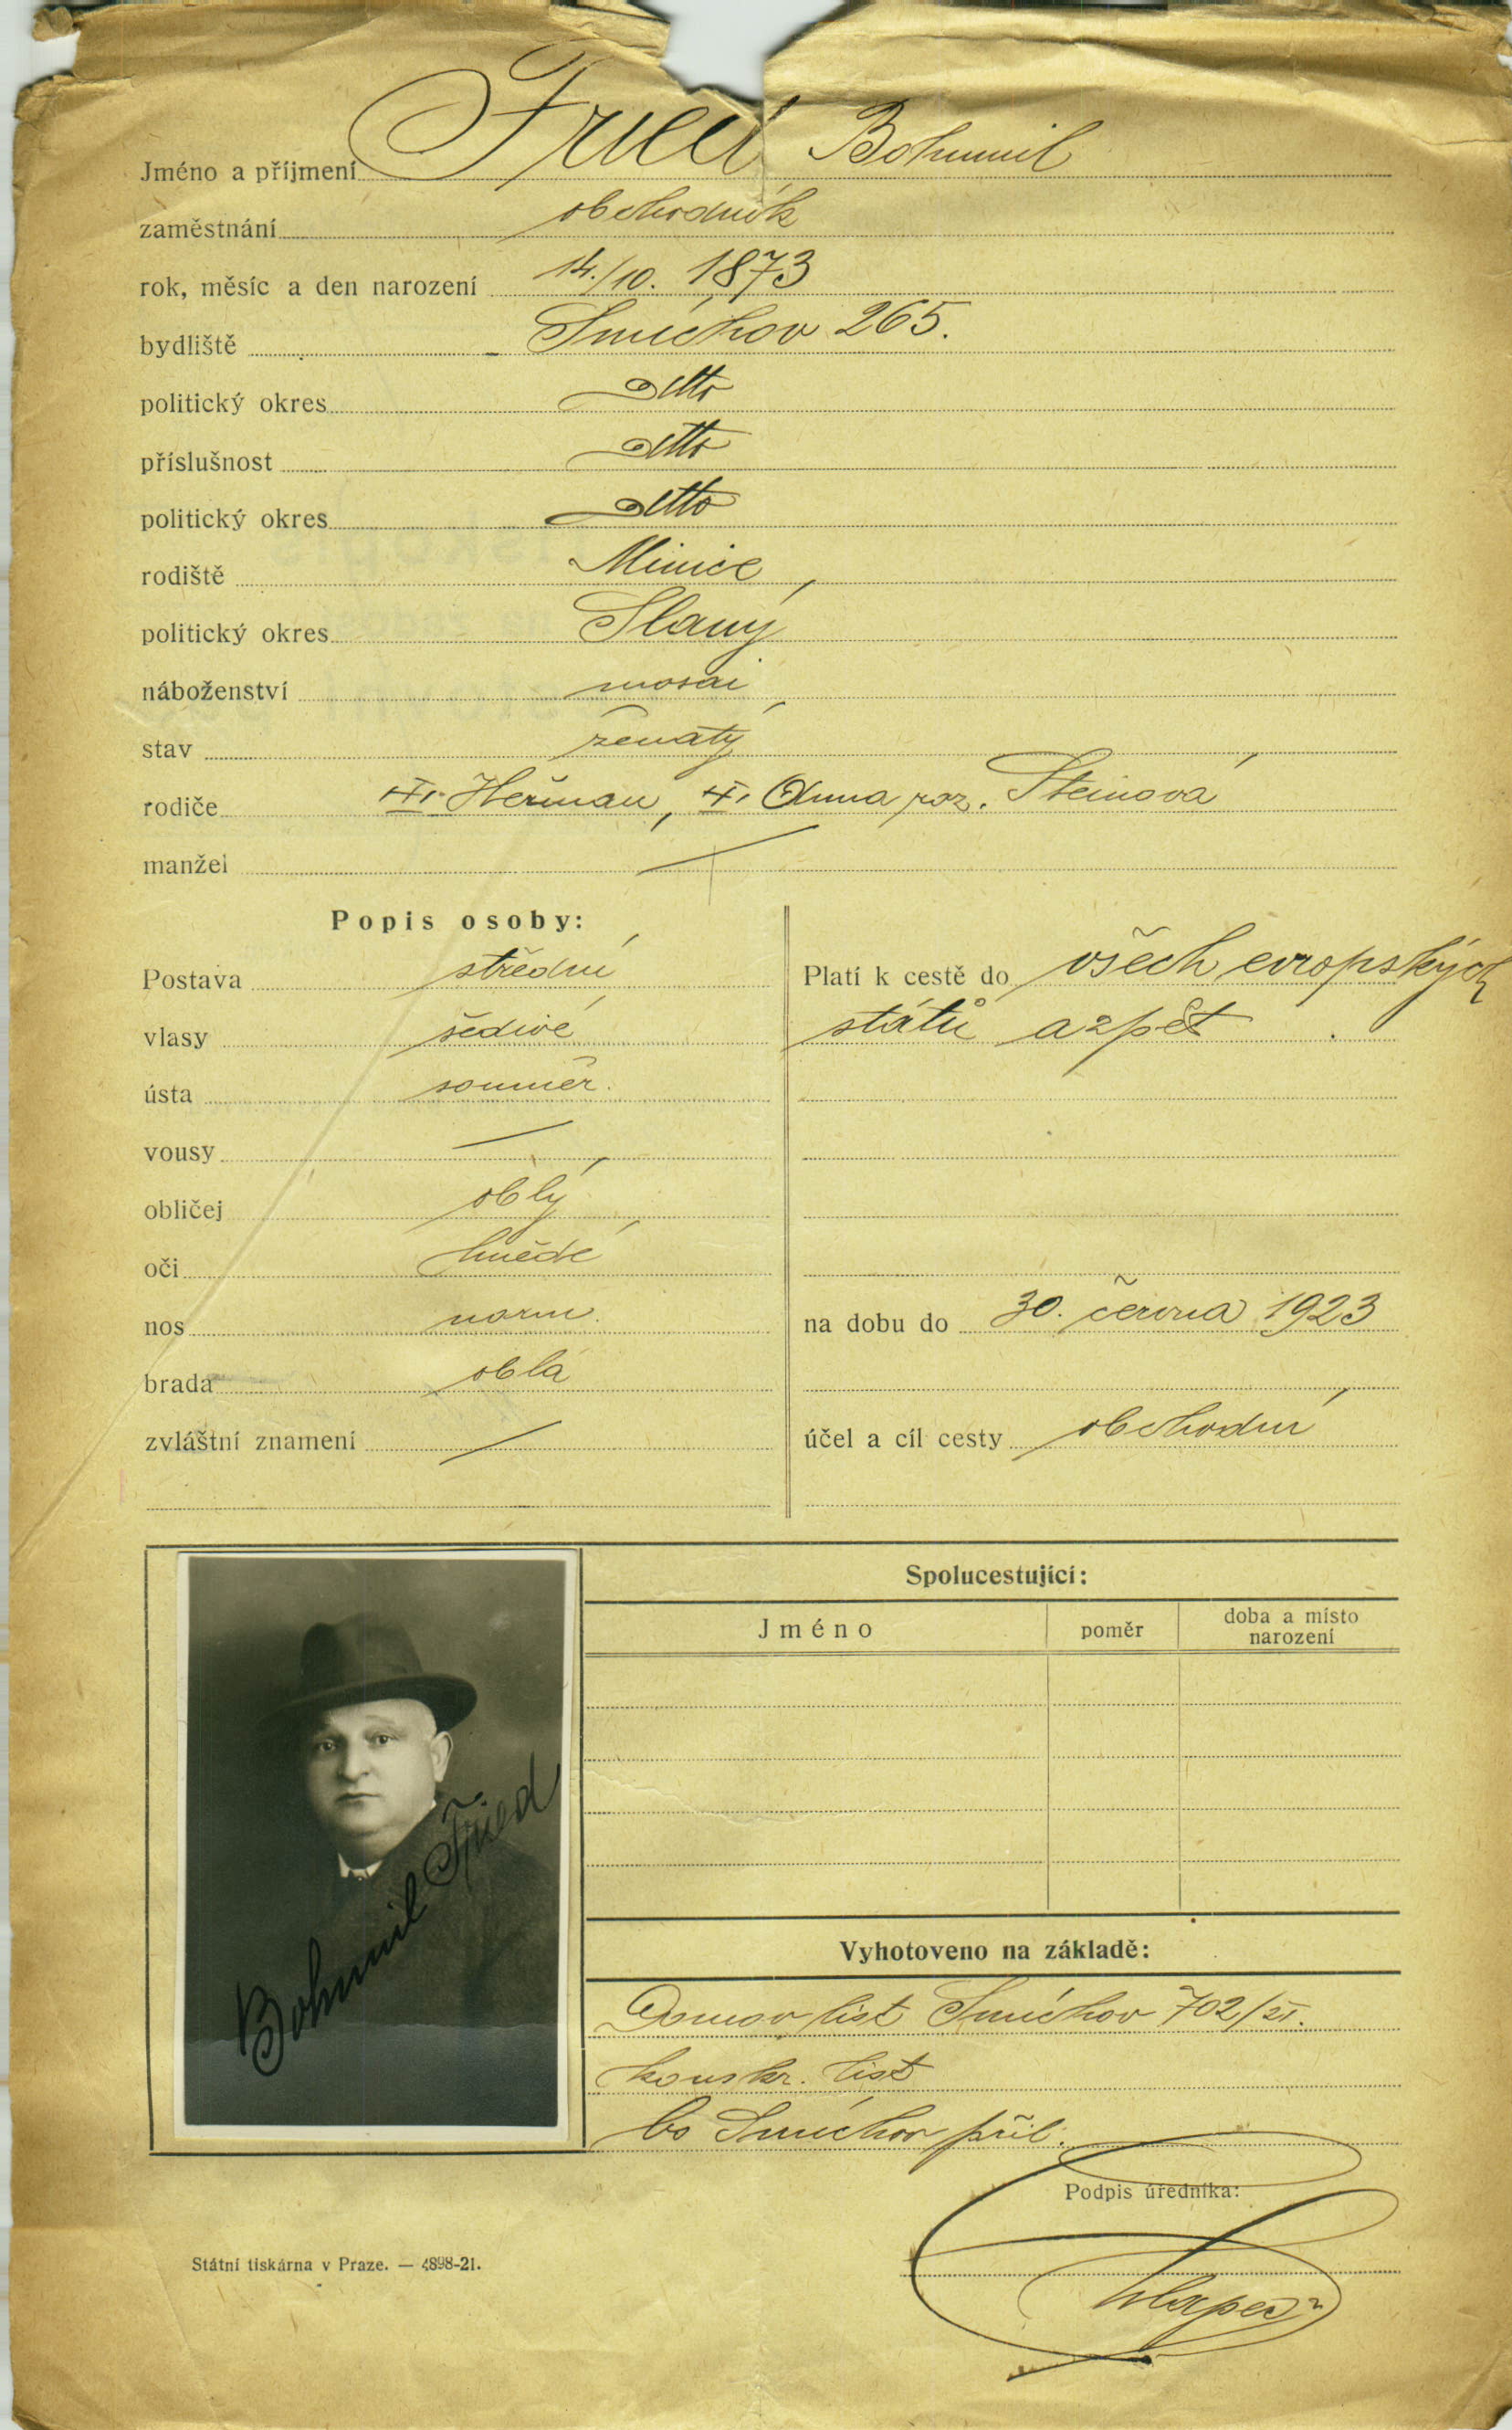 Jméno a příjmení Fried Bohumil
zaměstnání obchodník
rok, měsíc a den narození 14./10. 1873
bydliště Smíchov 265.
politický okres detto
příslušnost detto
politický okres detto
rodiště Minice,
politický okres Slaný
náboženství mosai
stav ženatý
rodiče Heřman, Anna roz. Steinová
manžel /
Popis osoby:
Postava střední
vlasy šedivé
ústa souměr.
vousy —
obličej oblý
oči hnědé
nos norm.
brada oblá
zvláštní znamení /
Platí k cestě do všech evropských
států a zpět.
na dobu do 30. června 1923
účel a cíl cesty obchodní
Spolucestující:
Jméno poměr doba a místo
narození
Bohumil Fried
Vyhotoveno na základě:
Domov. list Smíchov 702/21.
konskr. list
Smíchov příl.
Podpis úředníka:
Státní tiskárna v Praze. — 4898-21.